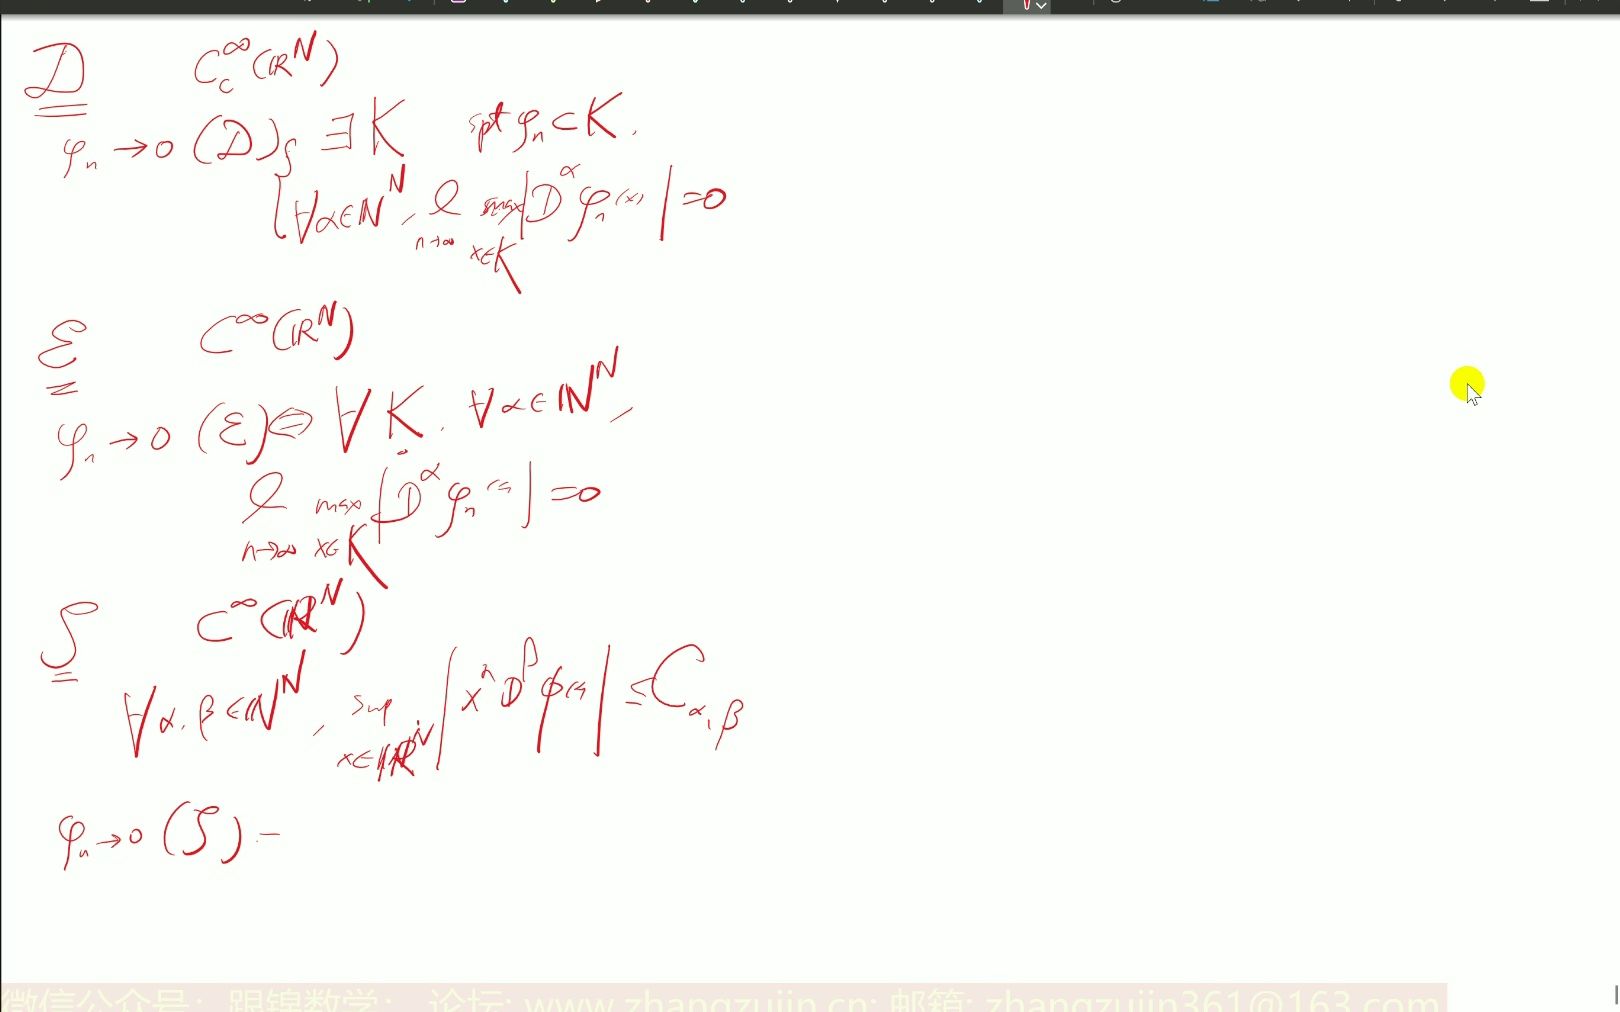 D C_c^∞(ℝ^N)
φ_n → 0 (D) { ∃ K spt φ_n ⊂ K.
∀α∈ℕ^N, l max |D^α φ_n(x)| = 0
n→∞ x∈K
ℰ C^∞(ℝ^N)
φ_n → 0 (ℰ) ⇔ ∀ K, ∀α∈ℕ^N,
l max |D^α φ_n(x)| = 0
n→∞ x∈K
S C^∞(ℝ^N)
∀α, β∈ℕ^N, sup |x^α D^β φ(x)| ≤ C_{α,β}
x∈ℝ^N
φ_n → 0 (S) =
微信公众号: 跟锦数学; 论坛: www.zhangzujin.cn; 邮箱: zhangzujin361@163.com